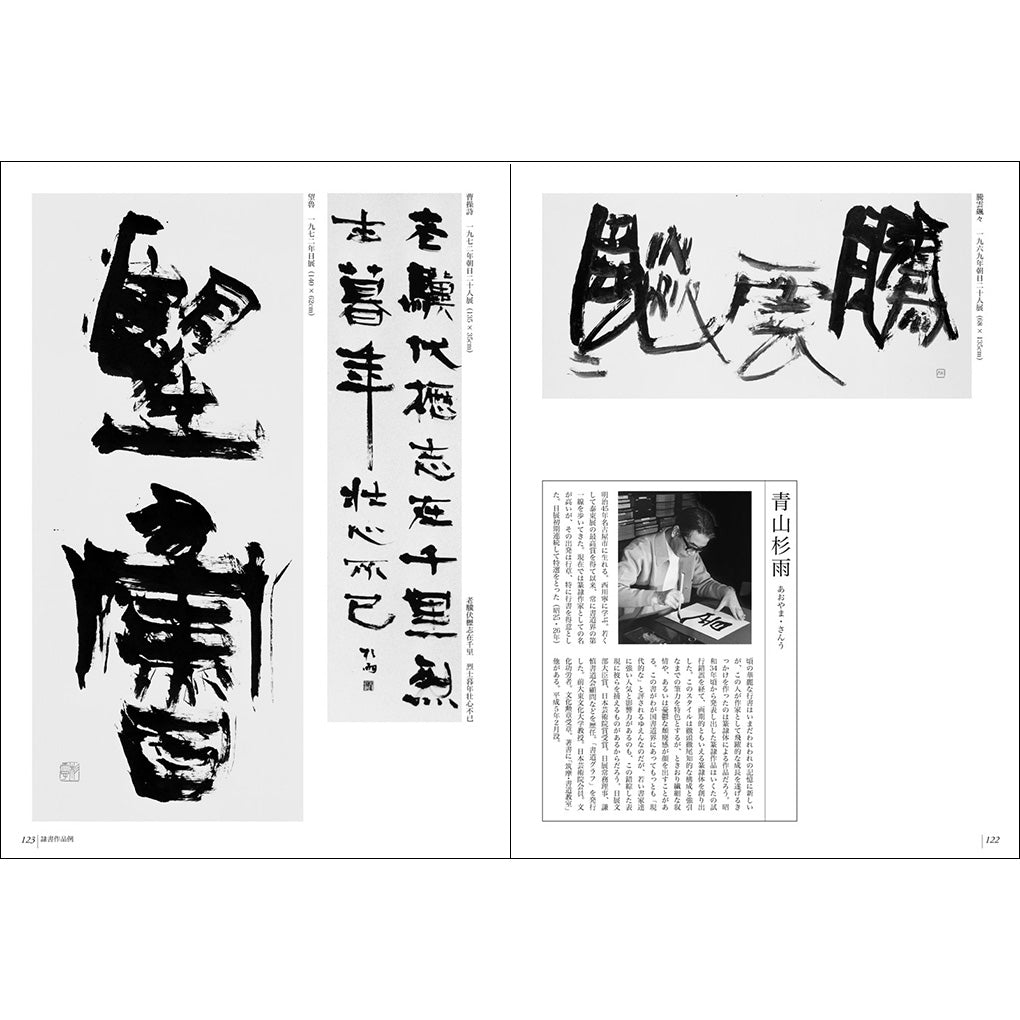 騰雲颯々 一九六九年朝日二十人展 (68×135cm)
青山杉雨 あおやま・さんう
明治45年名古屋市に生れる。西川寧に学ぶ。若く
して泰東展の最高賞を得て以来、常に書道界の第
一線を歩いてきた。現在では篆隷作家としての名
が高いが、その出発は行草、特に行書を得意とし
た。日展初期連続して特選をとった(昭25・26年)
頃の華麗な行書はいまだわれわれの記憶に新しい
が、この人が作家として飛躍的な成長を遂げるき
っかけを作ったのは篆隷体による作品だろう。昭
和34年頃から発表し出した篆隷作品はいくたの試
行錯誤を経て、画期的ともいえる篆隷体を創り出
した。このスタイルは徹頭徹尾知的な構成と強引
なまでの筆力を特色とするが、ときおり繊細な叙
情や、あるいは憂鬱な頽廃感が顔を出すことがあ
る。この書がわが国書道界にあってもっとも「現
代的な」と評されるゆえんなのだが、若い書家達
に強い人気と影響力があるのも、この錯綜した表
現に彼らを捕えるものがあるからだろう。日展文
部大臣賞、日本芸術院賞受賞。日展常務理事、謙
慎書道会顧問などを歴任。「書道グラフ」を発行
した。前大東文化大学教授。日本芸術院会員。文
化功労者。文化勲章受章。著書に「筑摩・書道教室」
他がある。平成5年2月没。
122
曹操詩 一九七二年朝日二十人展 (135×35cm)
老驥伏櫪志在千里 烈士暮年壮心不已
老驥伏櫪志在千里烈
士暮年壮心不已 杉雨
望魯 一九七二年日展 (140×62cm)
望魯
123 隷書作品例